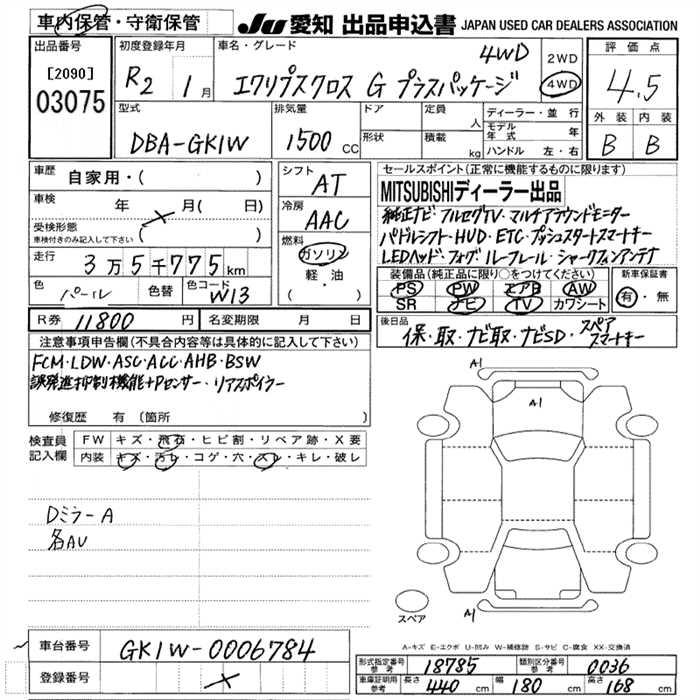 車内保管・守衛保管
JU 愛知 出品申込書 JAPAN USED CAR DEALERS ASSOCIATION
出品番号
[2090]
03075
初度登録年月
R2 1月
車名・グレード
4WD
エクリプスクロス G プラスパッケージ
2WD
4WD
評価点
4.5
外装 内装
B B
型式
DBA-GK1W
排気量
1500 cc
ドア
形状
定員 人
積載 kg
ディーラー・並行
モデル年式 年
ハンドル 左・右
車歴 自家用・( )
車検 年 月( 日)
受検形態
車検付きのみ記入して下さい ( )
走行 3万5千775km
色 パール 色替 色コード W13
シフト
AT
冷房
AAC
燃料
ガソリン
軽・油
( )
セールスポイント(正常に機能するものに限ります)
MITSUBISHIディーラー出品
純正ナビ・フルセグTV・マルチアラウンドモニター
パドルシフト・HUD・ETC・プッシュスタートスマートキー
LEDヘッド・フォグ ルーフレール・シャークフィンアンテナ
装備品(純正品に限り○をつけてください)
PS PW エアB AW
SR ナビ TV カワシート
新車保証書
有・無
R券 11800円 名変期限 月 日
後日品
保・取・ナビ取・ナビSD・スペアスマートキー
注意事項申告欄(不具合内容等は具体的に記入して下さい)
FCM・LDW・ASC・ACC・AHB・BSW
誤発進抑制機能+Pセンサー・リアスポイラー
修復歴 有(箇所 )
検査員記入欄
FW キズ・飛石・ヒビ割・リペア跡・X要
内装 キズ・汚レ・コゲ・穴・スレ・キレ・破レ
Dミラー A
各AU
A1
A1
A1
スペア
A-キズ E-エクボ U-凹み W-補修跡 S-サビ C-腐食 XX-交換済
車台番号 GK1W-0006784
登録番号
形式指定番号 参考 18785 類別区分番号 参考 0036
車庫証明用 参考 長さ 440 cm 幅 180 cm 高さ 168 cm